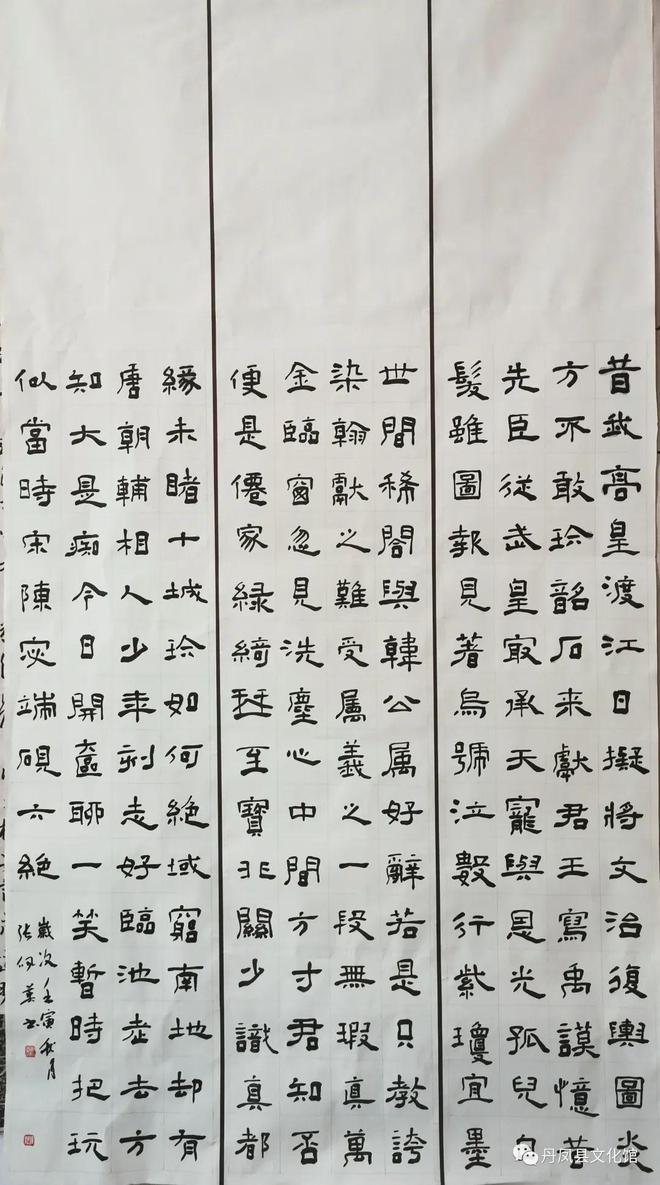 昔我高皇渡江日擬將文治復輿圖炎
方不敢珍韶石来獻君王寫禹謨憶昔
先臣從武皇最承天寵與恩光孤兒白
髮雖圖報見著烏號泣數行紫瓊宜墨
世間稀閤與韓公属好辭若是只教誇
染翰獻之難受属義之一段無瑕真萬
金臨窗忽見洗塵心中間方寸君知否
便是僊家緑綺琴至寶非關少識真都
緣未睹十城珍如何絶域窮南地却有
唐朝輔相人少年刻志好臨池老去方
知大是痴今日開奩聊一笑暫時把玩
似當時宋陳宓端硯六絶
歲次壬寅秋月
張書
丹凤县文化馆